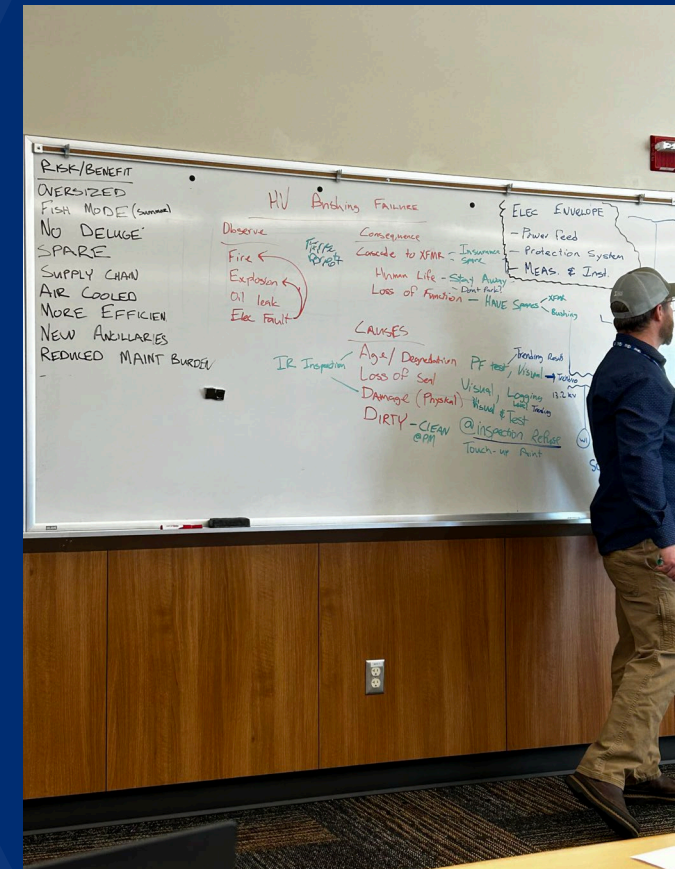 RISK/BENEFIT
OVERSIZED
FISH MODE (summer)
NO DELUGE
SPARE
SUPPLY CHAIN
AIR COOLED
MORE EFFICIEN
NEW ANCILLARIES
REDUCED MAINT BURDEN
-
HV Bushing FAILURE
Observe
Fire
Explosion
Oil leak
Elec Fault
Consequence
Cascade to XFMR - Insurance
- Spare
Human Life - Stay Away
- Don't Park!
Loss of Function - HAVE Spares
XFMR
Bushing
CAUSES
IR Inspection
Age/Degradation PF test, Visual
Trending Results
Trending
Loss of Seal Visual, Logging
Level Trending
Damage (Physical) Visual & Test
DIRTY - CLEAN
@PM
@inspection Refuse
Touch-up Paint
ELEC ENVELOPE
- Power Feed
- Protection System
- MEAS. & Inst.
13.2 kV